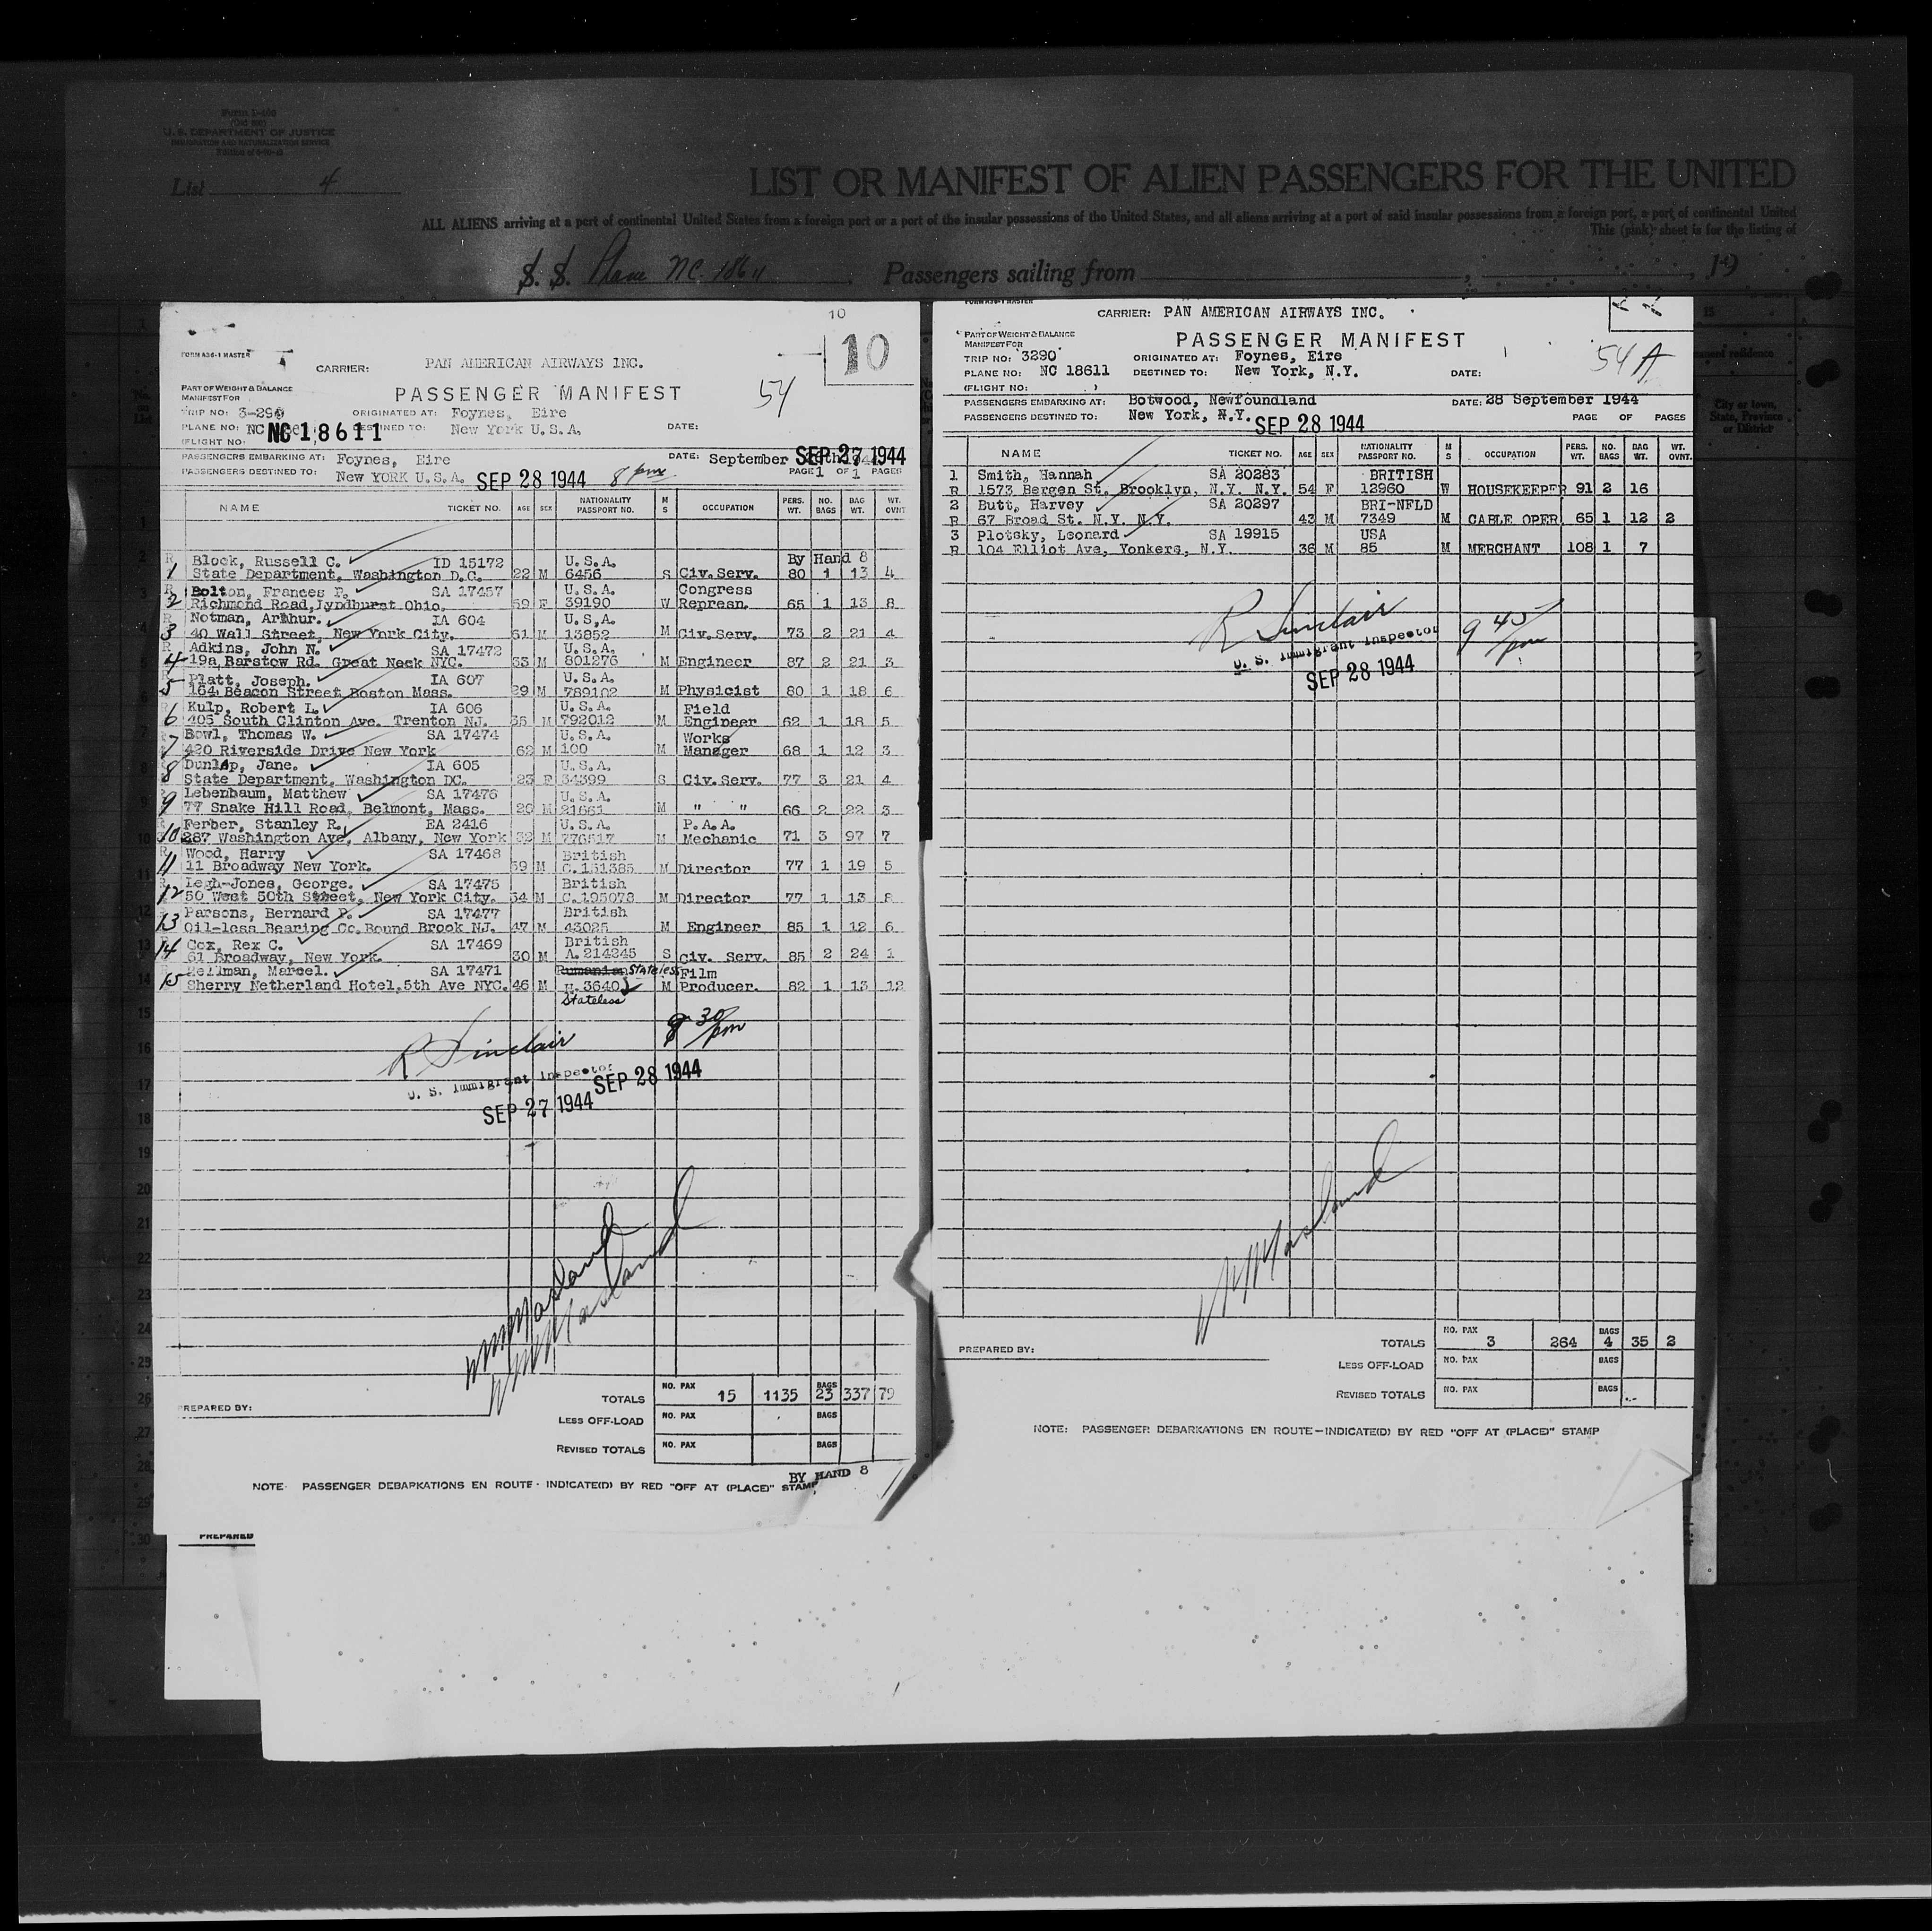 Form I-466
(Old 500)
U. S. DEPARTMENT OF JUSTICE
IMMIGRATION AND NATURALIZATION SERVICE
List 4
LIST OR MANIFEST OF ALIEN PASSENGERS FOR THE UNITED
ALL ALIENS arriving at a port of continental United States from a foreign port or a port of the insular possessions of the United States, and all aliens arriving at a port of said insular possessions from a foreign port, a port of continental United
This (pink) sheet is for the listing of
S. S. Plane NC. 18611 Passengers sailing from , , 19
10
10
FORM A36-1 MASTER
CARRIER: PAN AMERICAN AIRWAYS INC.
PART OF WEIGHT & BALANCE
MANIFEST FOR
PASSENGER MANIFEST 54
TRIP NO: 3-290 ORIGINATED AT: Foynes, Eire
PLANE NO: NC NC 18611 DESTINED TO: New York U.S.A, DATE:
(FLIGHT NO:
PASSENGERS EMBARKING AT: Foynes, Eire DATE: September SEP 27 1944
PASSENGERS DESTINED TO: New YORK U.S.A. SEP 28 1944 8 pm PAGE 1 OF 1 PAGES
NAME TICKET NO. AGE SEX NATIONALITY PASSPORT NO. M S OCCUPATION PERS. WT. NO. BAGS BAG WT. WT. OVNT
R Block, Russell C. ID 15172 U.S.A. By Hand 8
1 State Department, Washington D.C. 22 M 6456 S Civ.Serv. 80 1 13 4
R Bolton, Frances P. SA 17457 U.S.A. Congress
2 Richmond Road, Lyndhurst Ohio. 59 F 39190 W Represn. 65 1 13 8
R Notman, Arthur. IA 604 U.S,A.
3 40 Wall Street, New York City. 61 M 13852 M Civ.Serv. 73 2 21 4
R Adkins, John N. SA 17472 U.S.A.
4 19a, Barstow Rd. Great Neck NYC. 33 M 801276 M Engineer 87 2 21 3
R Platt, Joseph. IA 607 U.S.A.
5 164 Beacon Street Boston Mass. 29 M 789102 M Physicist 80 1 18 6
Kulp, Robert L. IA 606 U.S.A. Field
6 405 South Clinton Ave. Trenton NJ. 35 M 792012 M Engineer 62 1 18 5
Bowl, Thomas W. SA 17474 U.S.A. Works
7 420 Riverside Drive New York 62 M 100 M Manager 68 1 12 3
Dunlap, Jane. IA 605 U.S.A.
8 State Department, Washington DC. 23 F 34399 S Civ.Serv. 77 3 21 4
Lebenbaum, Matthew SA 17476 U.S.A.
9 77 Snake Hill Road, Belmont, Mass. 26 M 21661 M " " 66 2 22 3
Ferber, Stanley R. EA 2416 U.S.A. P.A.A.
10 287 Washington Ave, Albany, New York 32 M 776517 M Mechanic 71 3 97 7
R Wood, Harry SA 17468 British
11 11 Broadway New York. 59 M C.151385 M Director 77 1 19 5
Legh-Jones, George. SA 17475 British
12 50 West 50th Street, New York City. 54 M C.195078 M Director 77 1 13 8
Parsons, Bernard P. SA 17477 British
13 Oil-less Bearing Co. Bound Brook NJ. 47 M 43025 M Engineer 85 1 12 6
Cox, Rex C. SA 17469 British
14 61 Broadway, New York. 30 M A.214245 S Civ. Serv. 85 2 24 1
Hellman, Marcel. SA 17471 Rumanian Stateless Film
15 Sherry Netherland Hotel, 5th Ave NYC. 46 M H.3640 M Producer. 82 1 13 12
Stateless
R Sinclair 8 30 pm
U. S. Immigrant Inspector SEP 28 1944
SEP 27 1944
W M Masland
W M Masland
PREPARED BY:
TOTALS NO. PAX 15 1135 BAGS 23 337 79
LESS OFF-LOAD NO. PAX BAGS
REVISED TOTALS NO. PAX BAGS
BY HAND 8
NOTE: PASSENGER DEBARKATIONS EN ROUTE - INDICATE(D) BY RED "OFF AT (PLACE)" STAMP
PREPARED
FORM A36-1 MASTER
CARRIER: PAN AMERICAN AIRWAYS INC.
PART OF WEIGHT & BALANCE
MANIFEST FOR
PASSENGER MANIFEST
54 A
TRIP NO: 3290 ORIGINATED AT: Foynes, Eire
PLANE NO: NC 18611 DESTINED TO: New York, N.Y. DATE:
(FLIGHT NO: )
PASSENGERS EMBARKING AT: Botwood, Newfoundland DATE: 28 September 1944
PASSENGERS DESTINED TO: New York, N.Y. SEP 28 1944 PAGE OF PAGES
NAME TICKET NO. AGE SEX NATIONALITY PASSPORT NO. M S OCCUPATION PERS. WT. NO. BAGS BAG WT. WT. OVNT.
1 Smith, Hannah SA 20283 BRITISH
R 1573 Bergen St. Brooklyn, N.Y. N.Y. 54 F 12960 W HOUSEKEEPER 91 2 16
2 Butt, Harvey SA 20297 BRI-NFLD
R 67 Broad St. N.Y. N.Y. 43 M 7349 M CABLE OPER 65 1 12 2
3 Plotsky, Leonard SA 19915 USA
R 104 Elliot Ave, Yonkers, N.Y. 36 M 85 M MERCHANT 108 1 7
R Sinclair 9 45 pm
U. S. Immigrant Inspector
SEP 28 1944
W M Masland
PREPARED BY:
TOTALS NO. PAX 3 264 BAGS 4 35 2
LESS OFF-LOAD NO. PAX BAGS
REVISED TOTALS NO. PAX BAGS
NOTE: PASSENGER DEBARKATIONS EN ROUTE—INDICATE(D) BY RED "OFF AT (PLACE)" STAMP
permanent residence
City or town,
State, Province
or District